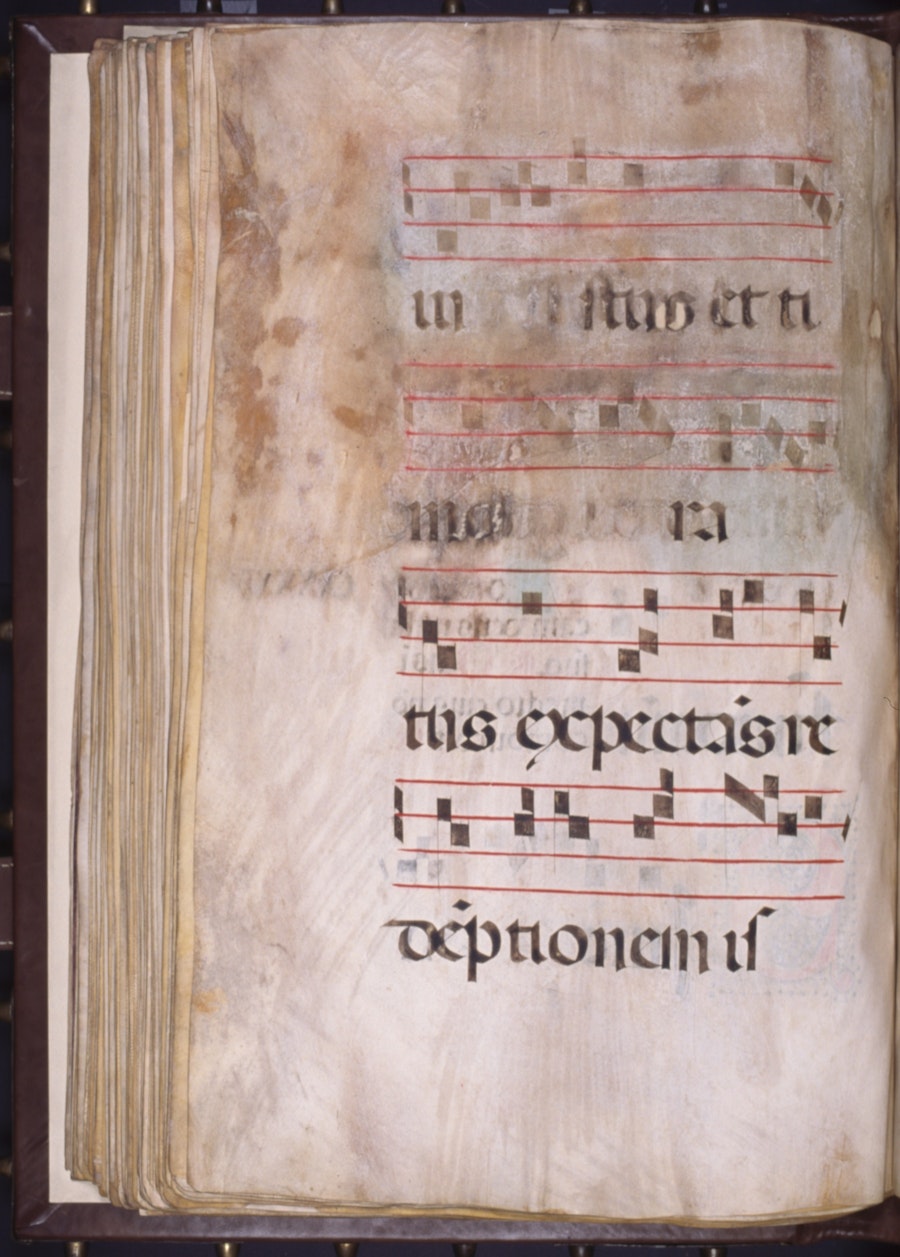 iu stus et ti
mo ra
tus expectās re
dēptionem iſ